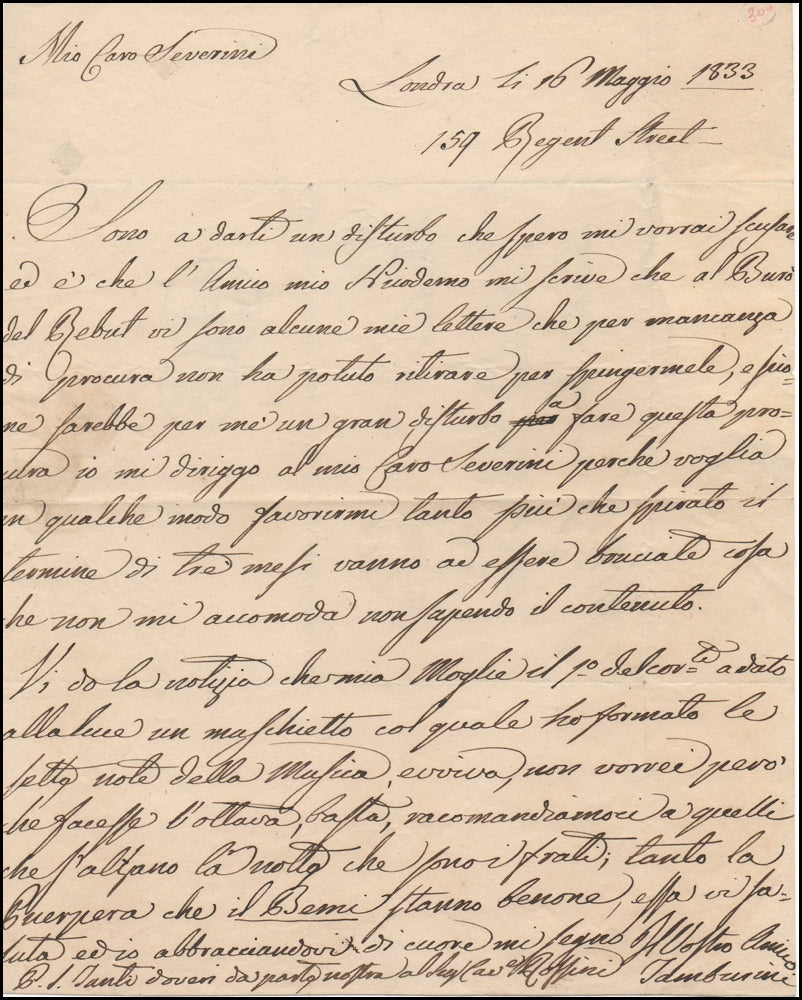 300
Mio Caro Severini
Londra li 16 Maggio 1833
159 Regent Street
Sono a darti un disturbo che spero mi vorrai scusare
ed è che l'Amico mio Nicodemo mi scrive che al Burò
del Rebut vi sono alcune mie lettere che per mancanza
di procura non ha potuto ritirare per spingermele, e sico=
me sarebbe per me un gran disturbo a fare questa pro=
cura io mi diriggo al mio Caro Severini perche voglia
in qualche modo favorirmi tanto più che spirato il
termine di tre mesi vanno ad essere bruciate cosa
che non mi accomoda non sapendo il contenuto.
Vi do la notizia che mia Moglie il 1º del cor=te a dato
alla luce un maschietto col quale ho formato le
sette note della Musica, evviva, non vorrei però
che facesse l'ottava, basta, racomandiamoci a quelli
che s'alzano la notte che sono i frati; tanto la
Puerpera che il Bemi stanno benone, essa vi sa=
luta ed io abbracciandovi di cuore mi segno Il Vostro Amico
P.S. Tanti doveri da parte nostra al Sig Cave Rossini Tamburini